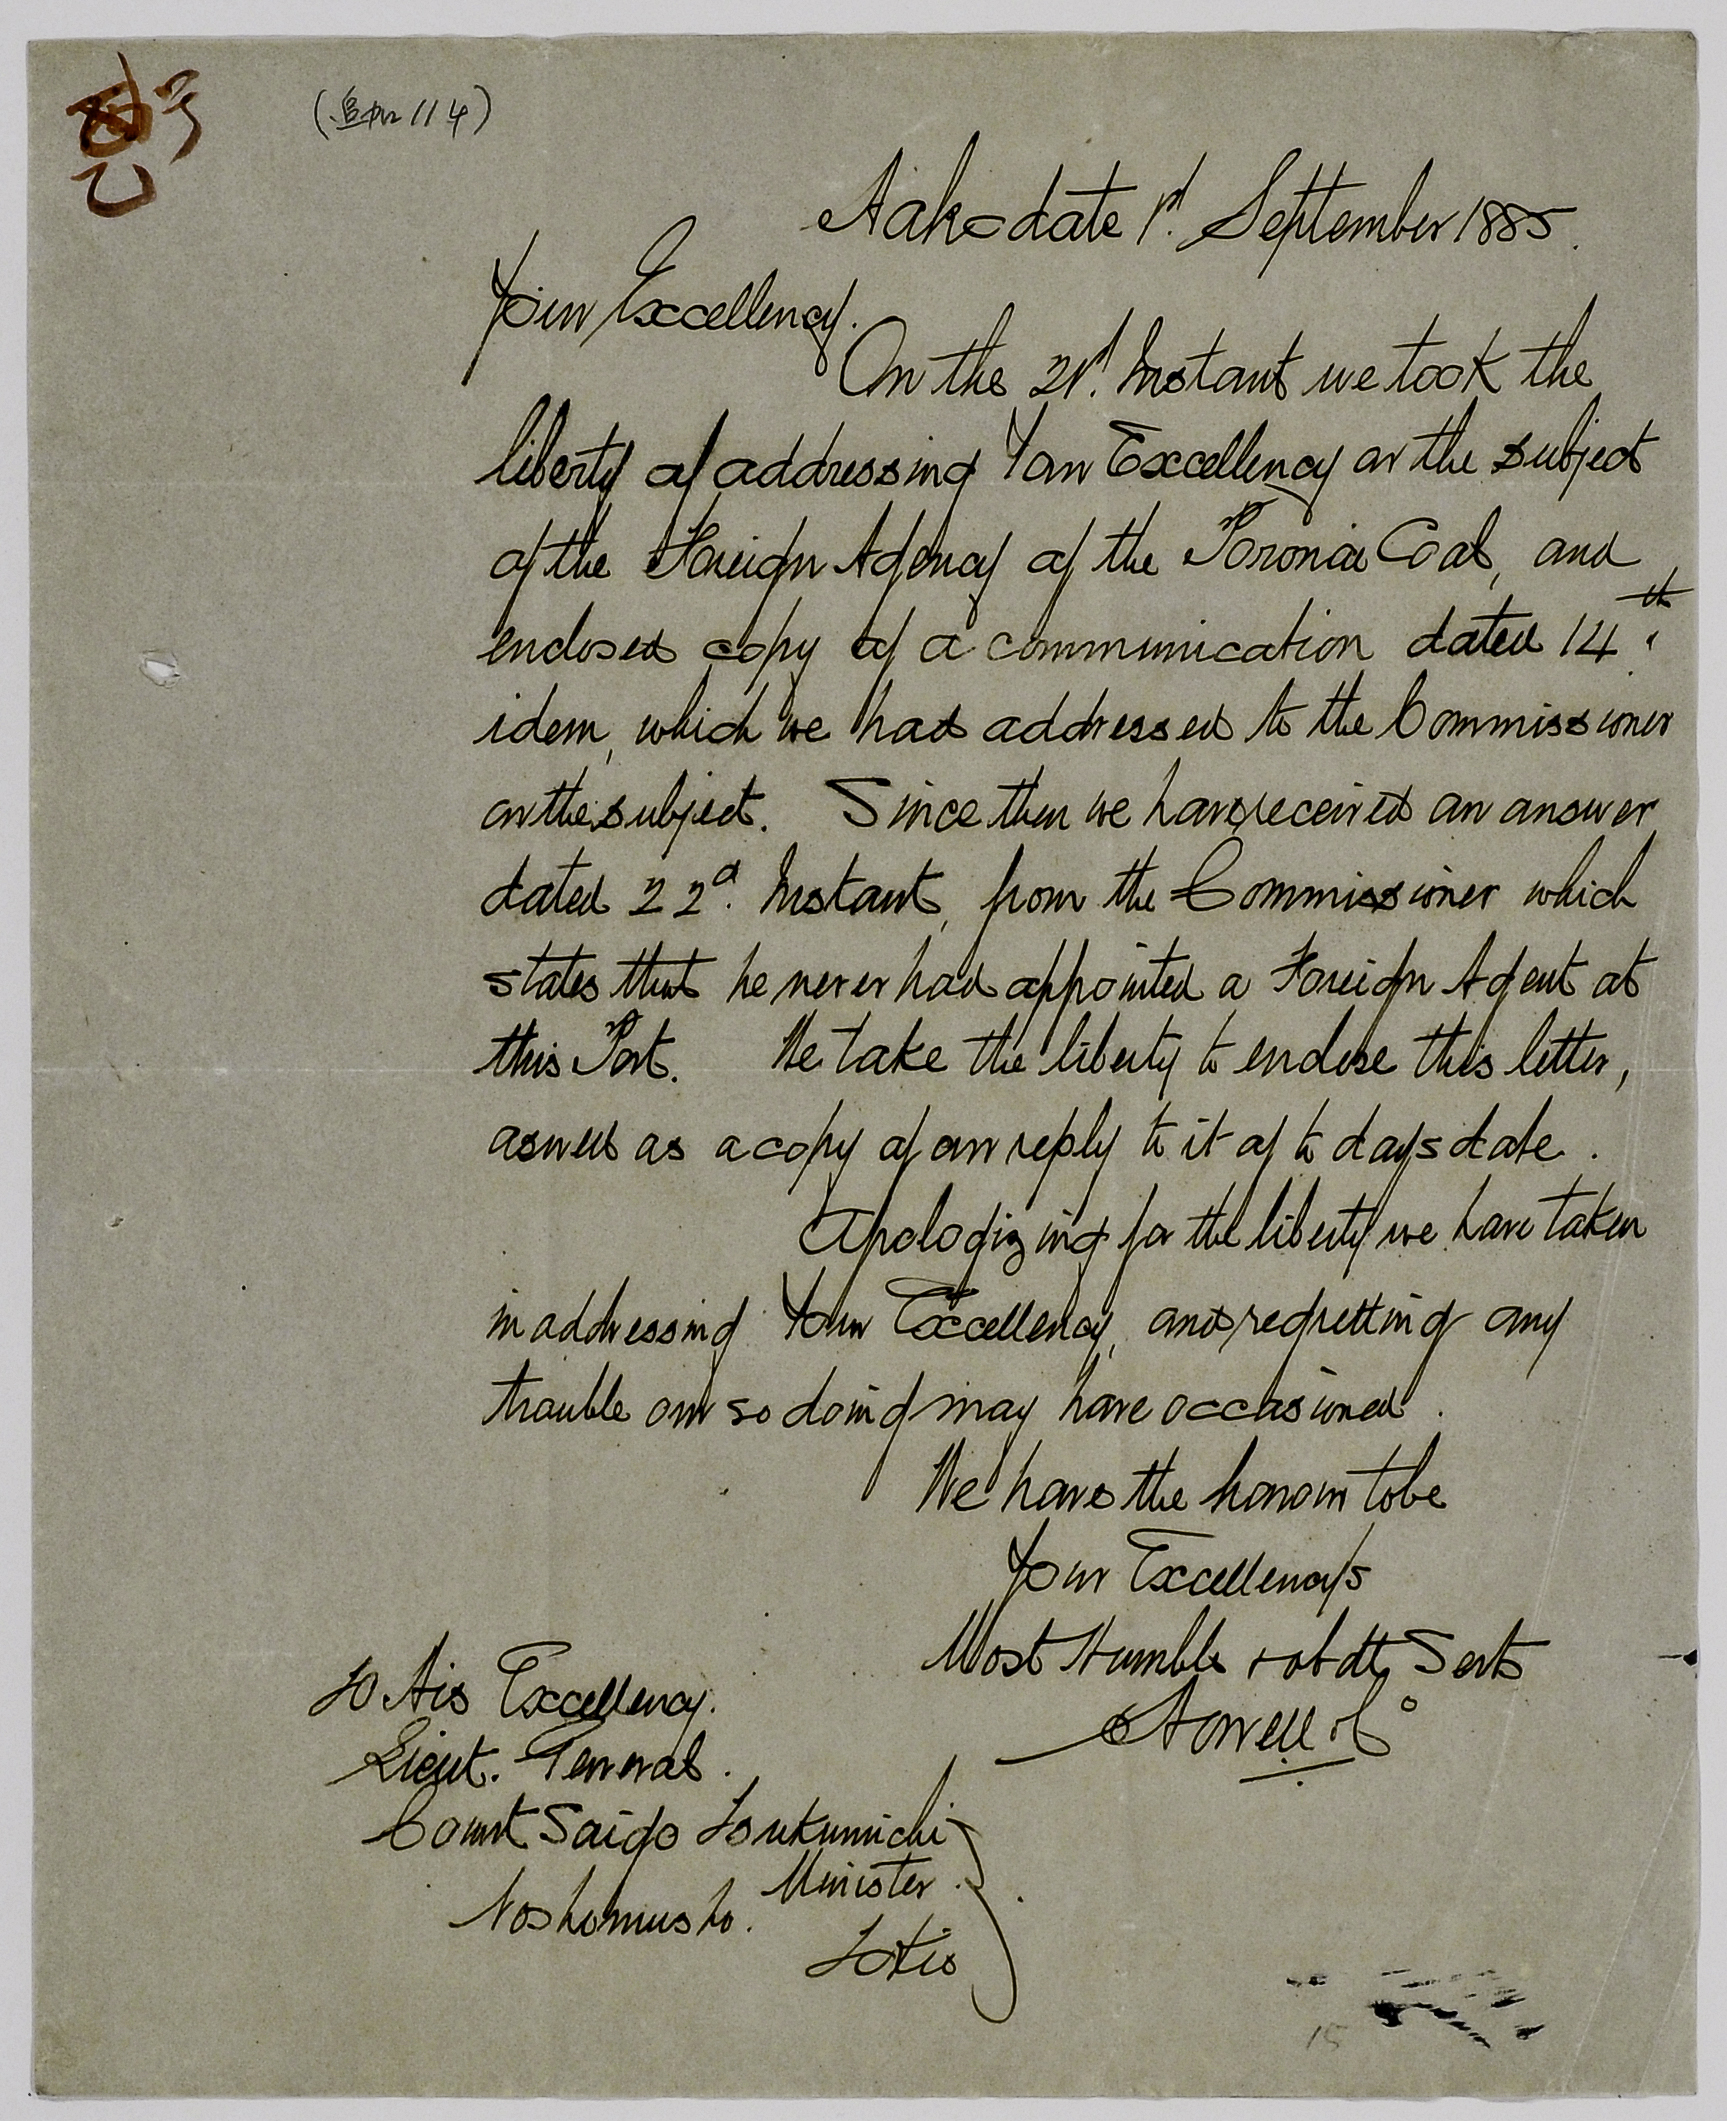 号
乙
(追加114)
Hakodate 1st. September 1885.
Your Excellency.
On the 21st. Instant we took the
liberty of addressing Your Excellency on the subject
of the Foreign Agency of the Poronai Coal, and
enclosed copy of a communication dated 14th.
idem, which we had addressed to the Commissioner
on the subject. Since then we have received an answer
dated 22d. Instant, from the Commissioner which
states that he never had appointed a Foreign Agent at
this Port. We take the liberty to enclose this letter,
as well as a copy of our reply to it of to days date.
Apologizing for the liberty we have taken
in addressing Your Excellency, and regretting any
trouble our so doing may have occasioned.
We have the honour to be
Your Excellency's
Most Humble & obdt. Servts
Howell & Co
To His Excellency.
Lieut. General.
Count Saigo Tsukumichi
Minister.
Noshomusho.
Tokio
15